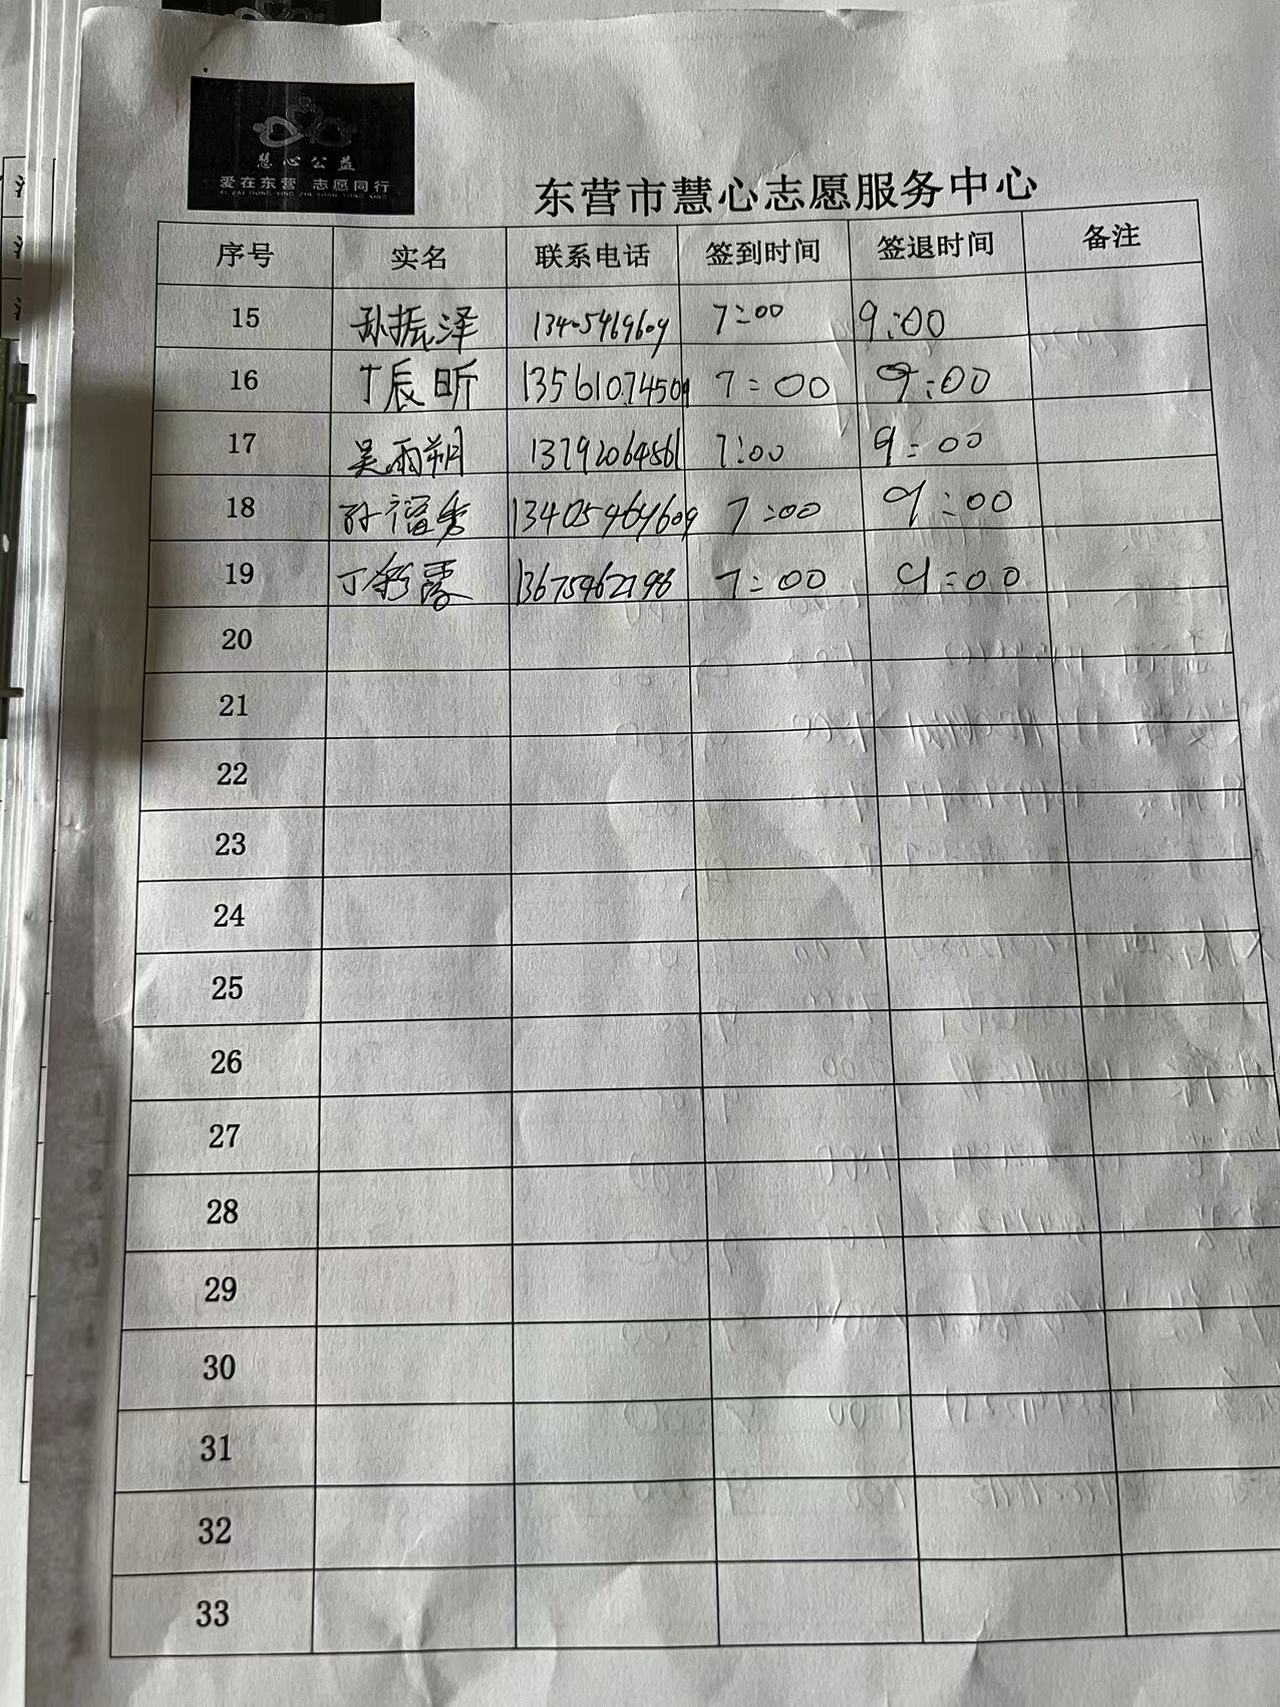 慧心公益
爱在东营 志愿同行
AI ZAI DONG YING ZHI YUAN TONG XING
东营市慧心志愿服务中心
序号 实名 联系电话 签到时间 签退时间 备注
15 孙振泽 13405469609 7:00 9:00
16 丁辰昕 13561074509 7:00 9:00
17 吴雨朔 13792064561 7:00 9:00
18 孙福秀 13405469609 7:00 9:00
19 丁彩霞 13675462798 7:00 9:00
20
21
22
23
24
25
26
27
28
29
30
31
32
33